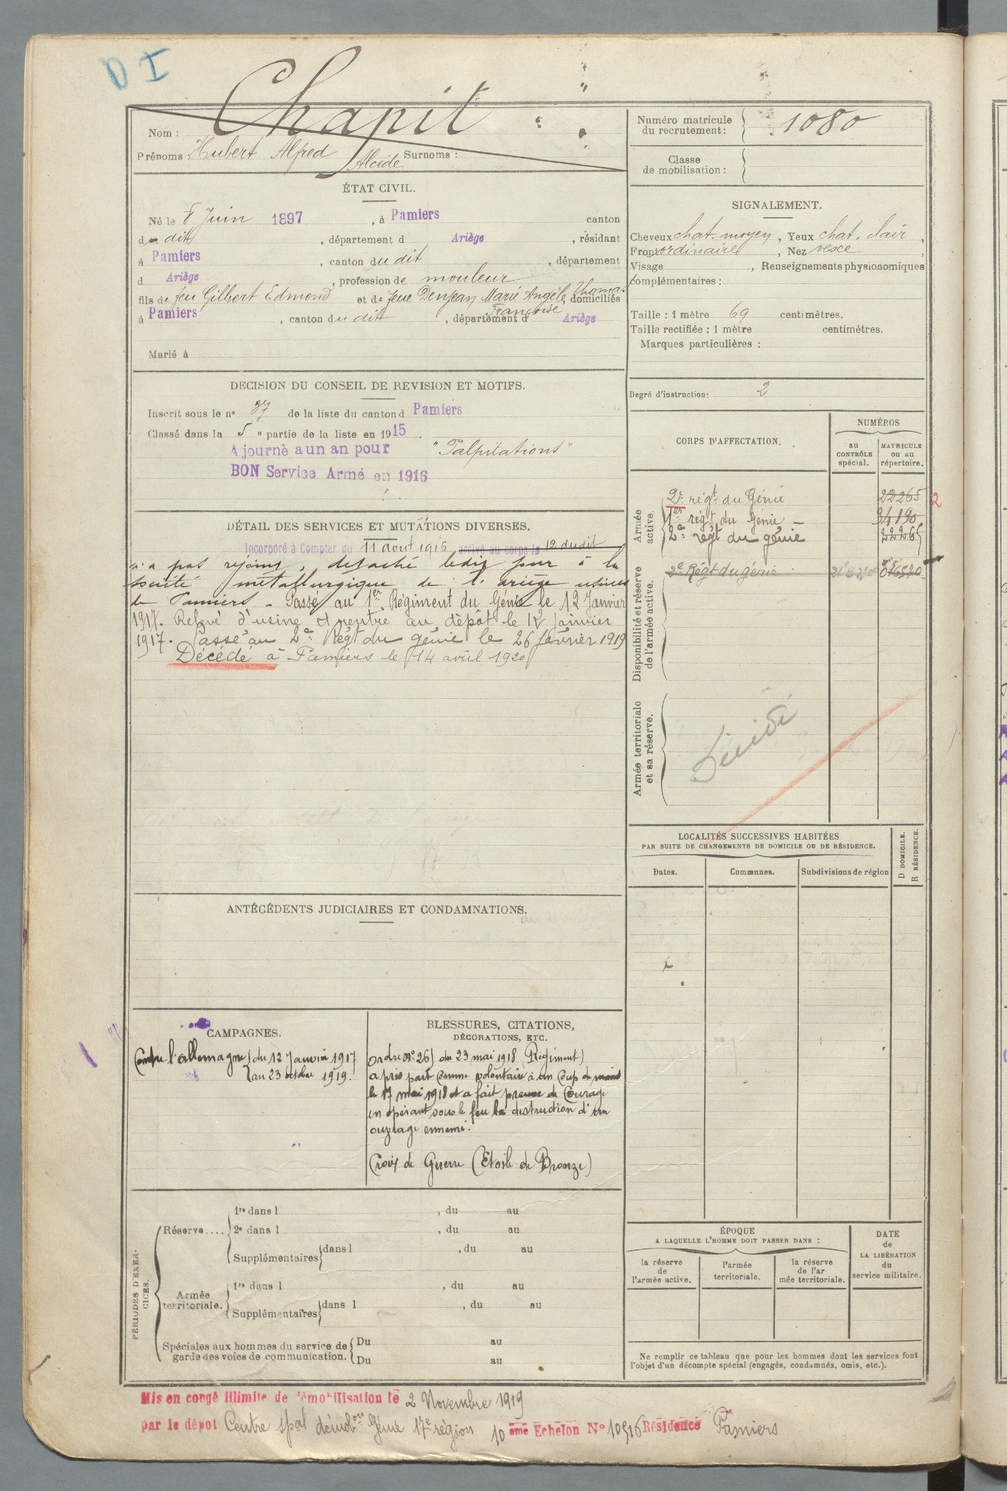 D I
Nom : Chapit
Prénoms : Hubert Alfred Alcide Surnoms :
ÉTAT CIVIL.
Né le 8 Juin 1897, à Pamiers canton
du dit, département d Ariège, résidant
à Pamiers, canton du dit, département
d Ariège, profession de mouleur
fils de feu Gilbert Edmond et de feue Denjean Marie Angèle Thomas Françoise domiciliés
à Pamiers, canton du dit, département d Ariège
Marié à
DECISION DU CONSEIL DE REVISION ET MOTIFS.
Inscrit sous le n° 37 de la liste du canton d Pamiers
Classé dans la 5e partie de la liste en 1915.
Ajourné à un an pour "Palpitations"
BON Service Armé en 1916
DÉTAIL DES SERVICES ET MUTATIONS DIVERSES.
Incorporé à Compter du 11 août 1916 arrivé au corps le 12 du dit
n'a pas rejoint, détaché ledit jour à la
Société métallurgique de l'ariège usines
de Pamiers. Passé au 1er Régiment du Génie le 12 Janvier
1917. Relevé d'usine et rentré au dépôt le 12 Janvier
1917. Passé au 2e Régt du génie le 26 février 1919
Décédé à Pamiers le 14 avril 1920
ANTÉCÉDENTS JUDICIAIRES ET CONDAMNATIONS.
CAMPAGNES.
Contre l'allemagne du 12 Janvier 1917
au 23 octobre 1919.
BLESSURES, CITATIONS,
DÉCORATIONS, ETC.
Ordre n° 26 du 23 mai 1918 (Régiment)
a pris part comme volontaire à un coup de main
le 17 mai 1918 et a fait preuve de Courage
en opérant sous le feu la destruction d'un
ouvrage ennemi.
Croix de Guerre (Etoile de Bronze)
PÉRIODES D'EXERCICES.
Réserve....
1re dans l , du au
2e dans l , du au
Supplémentaires dans l , du au
Armée territoriale.
1re dans l , du au
Supplémentaires dans l , du au
Spéciales aux hommes du service de garde des voies de communication.
Du au
Du au
Numéro matricule du recrutement : 1080
Classe de mobilisation :
SIGNALEMENT.
Cheveux chat. moyen, Yeux chat. clair,
Front ordinaire, Nez vexe,
Visage , Renseignements physionomiques
complémentaires :
Taille : 1 mètre 69 centimètres.
Taille rectifiée : 1 mètre centimètres.
Marques particulières :
Degré d'instruction : 2
CORPS D'AFFECTATION.
NUMÉROS
au CONTRÔLE spécial.
MATRICULE ou au répertoire.
Armée active.
2e régt du Génie 22265 2
1er régt du Génie 34190
2e régt du génie 22265
Disponibilité et réserve de l'armée active.
2e Régt du génie
Armée territoriale et sa réserve.
LOCALITÉS SUCCESSIVES HABITÉES
PAR SUITE DE CHANGEMENTS DE DOMICILE OU DE RÉSIDENCE.
Dates. Communes. Subdivisions de région D DOMICILE. R RÉSIDENCE.
ÉPOQUE
A LAQUELLE L'HOMME DOIT PASSER DANS :
la réserve de l'armée active.
l'armée territoriale.
la réserve de l'armée territoriale.
DATE de LA LIBÉRATION du service militaire.
Ne remplir ce tableau que pour les hommes dont les services font
l'objet d'un décompte spécial (engagés, condamnés, omis, etc.).
Mis en congé illimité de démobilisation le 2 Novembre 1919
par le dépôt Centre spal démobon Génie 17e région 10ème Echelon N° 10516 Résidence Pamiers